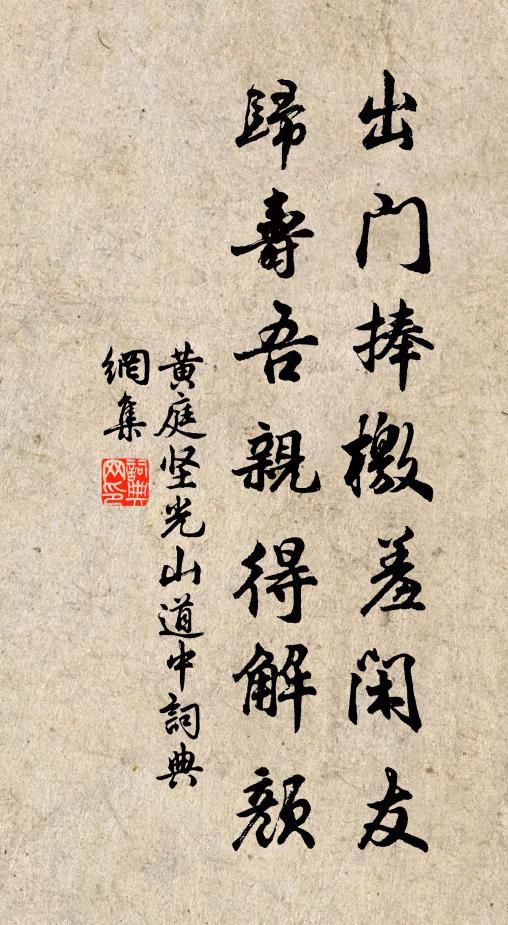 出门捧檄羞闲友
歸壽吾親得解顏
黄庭坚光山道中詞典
網集
詞典网印